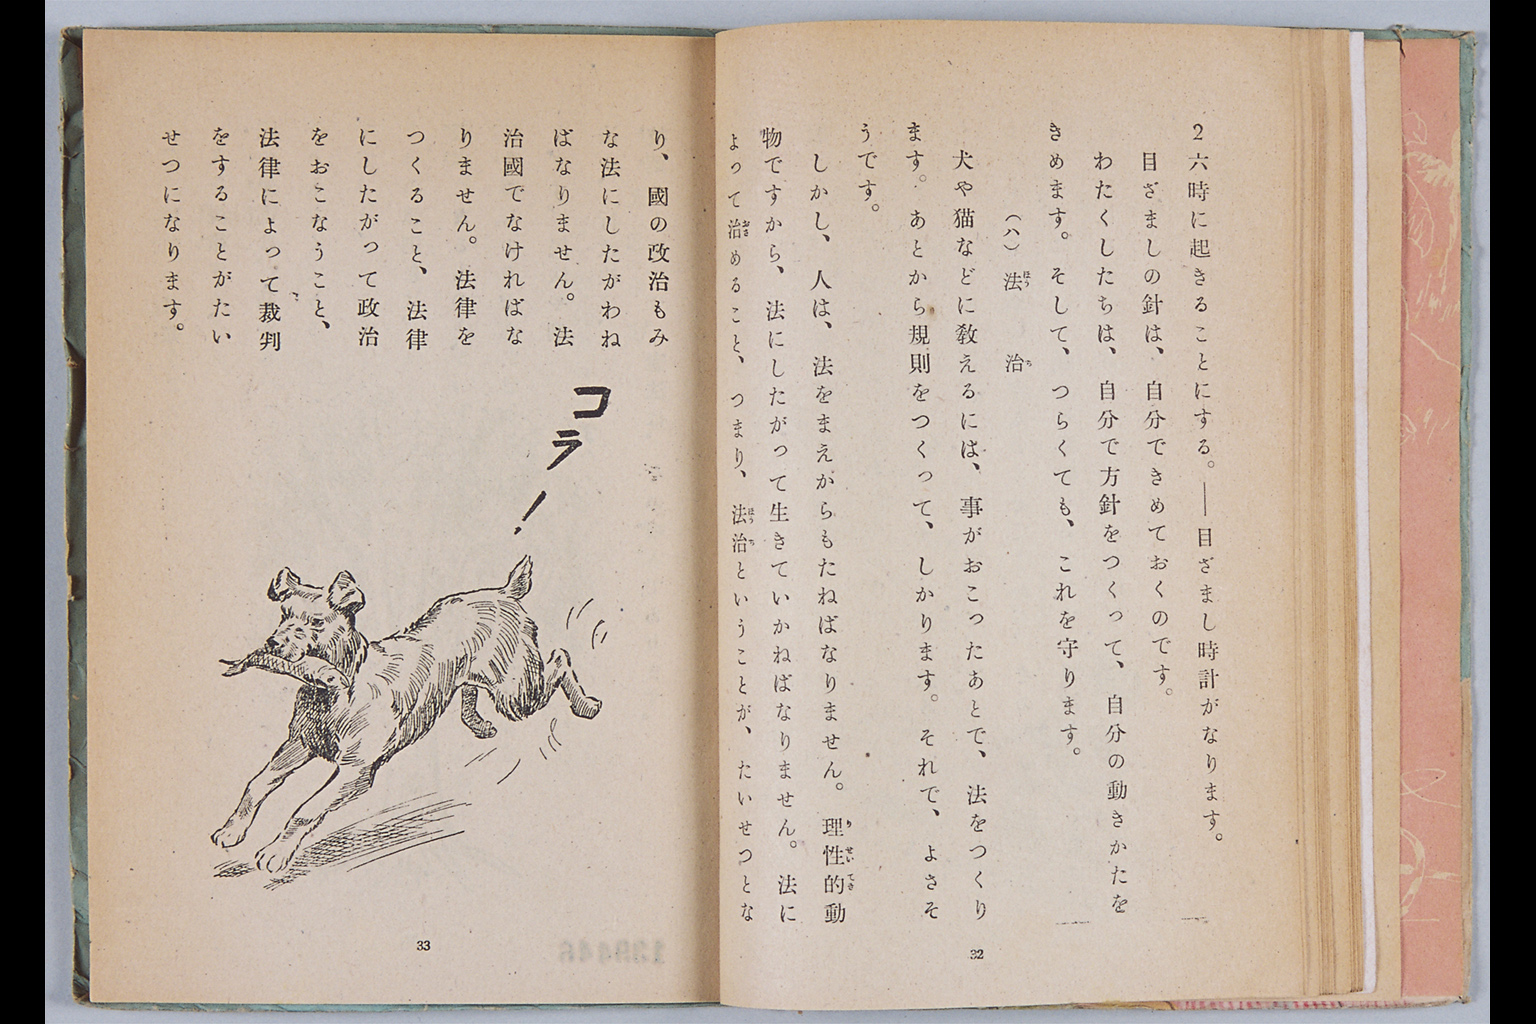 2 六時に起きることにする。──目ざまし時計がなります。
目ざましの針は、自分できめておくのです。
わたくしたちは、自分で方針をつくって、自分の動きかたを
きめます。そして、つらくても、これを守ります。
(ハ) 法治
犬や猫などに教えるには、事がおこったあとで、法をつくり
ます。あとから規則をつくって、しかります。それで、よさそ
うです。
しかし、人は、法をまえがらもたねばなりません。理性的動
物ですから、法にしたがって生きていかねばなりません。法に
よって治めること、つまり、法治ということが、たいせつとな
32
り、國の政治もみ
な法にしたがわね
ばなりません。法
治國でなければな
りません。法律を
つくること、法律
にしたがって政治
をおこなうこと、
法律によって裁判
をすることがたい
せつになります。
コラ!
33